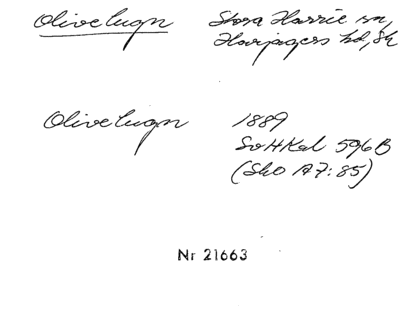 Olivelugn Stora Harrie sn,
Harjagers hd, Sk
Olivelugn 1889
SvHKal 596 B
(SkO A7:85)
Nr 21663